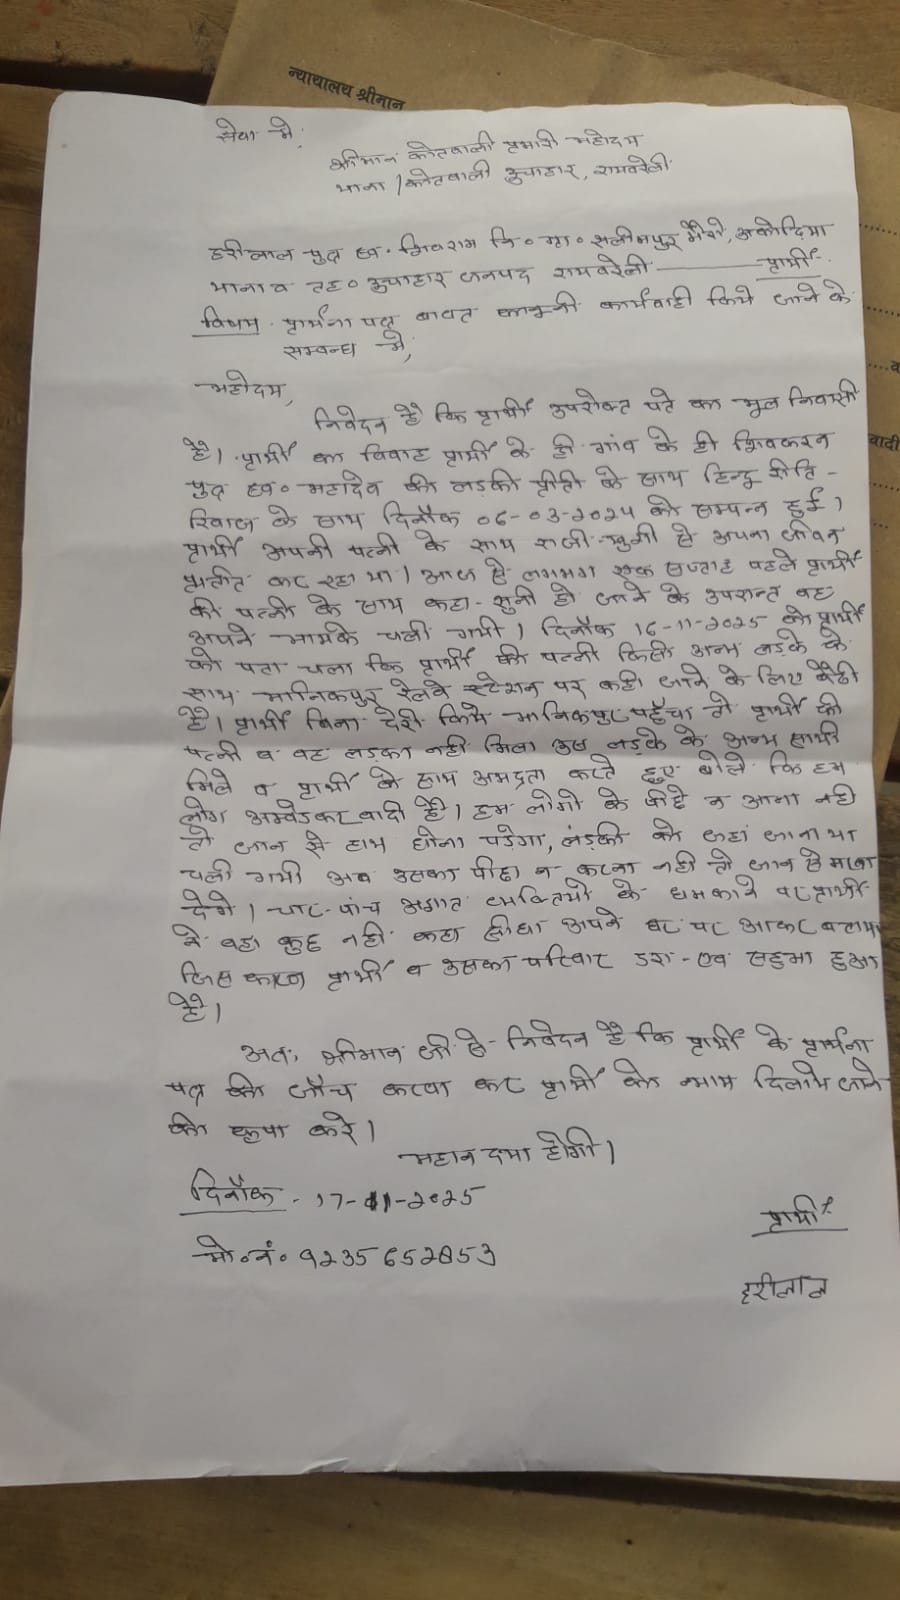 न्यायालय श्रीमान
सेवा मे,
श्रीमान कोतवाली प्रभारी महोदय
थाना / कोतवाली ऊंचाहार, रायबरेली
हरीलाल पुत्र स्व० शिवराम नि० ग्रा० सलीमपुर भैरो, अकोढिया
थाना व तह० ऊचाहार जनपद रायबरेली ——— प्रार्थी
विषय - प्रार्थना पत्र बावत कानूनी कार्यवाही किये जाने के
सम्बन्ध मे,
महोदय,
निवेदन है कि प्रार्थी उपरोक्त पते का मूल निवासी
है। प्रार्थी का विवाह प्रार्थी के ही गांव के ही शिवकरन
पुत्र स्व० महादेव की लड़की प्रीती के साथ हिन्दू रीति -
रिवाज के साथ दिनाँक 06-03-2024 को सम्पन्न हुई।
प्रार्थी अपनी पत्नी के साथ राजी-खुशी से अपना जीवन
प्रतीत कर रहा था। आज से लगभग एक सप्ताह पहले प्रार्थी
की पत्नी के साथ कहा-सुनी हो जाने के उपरान्त वह
अपने मायके चली गयी। दिनाँक 16-11-2025 को प्रार्थी
को पता चला कि प्रार्थी की पत्नी किसी अन्य लड़के के
साथ मानिकपुर रेलवे स्टेशन पर कही जाने के लिए बैठी
है। प्रार्थी बिना देरी किये मानिकपुर पहुँचा तो प्रार्थी की
पत्नी व वह लड़का नही मिला उस लड़के के अन्य साथी
मिले व प्रार्थी के साथ अभद्रता करते हुए बोले कि हम
लोग अम्बेडकर वादी है। हम लोगो के पीछे न आना नही
तो जान से हाथ धोना पड़ेगा, लड़की को जहां जाना था
चली गयी अब उसका पीछा न करना नही तो जान से मरवा
देगे। चार-पांच अज्ञात व्यक्तियो के धमकाने पर प्रार्थी
ने वहा कुछ नही कहा सीधा अपने घर पर आकर बताया
जिस कारण प्रार्थी व उसका परिवार डरा-एवं सहमा हुआ
है।
अतः श्रीमान जी से निवेदन है कि प्रार्थी के प्रार्थना
पत्र की जाँच करवा कर प्रार्थी को न्याय दिलाये जाने
की कृपा करे।
महान दया होगी।
दिनाँक - 17-11-2025
प्रार्थी
मो०नं० 9235652853
हरीलाल
वादी